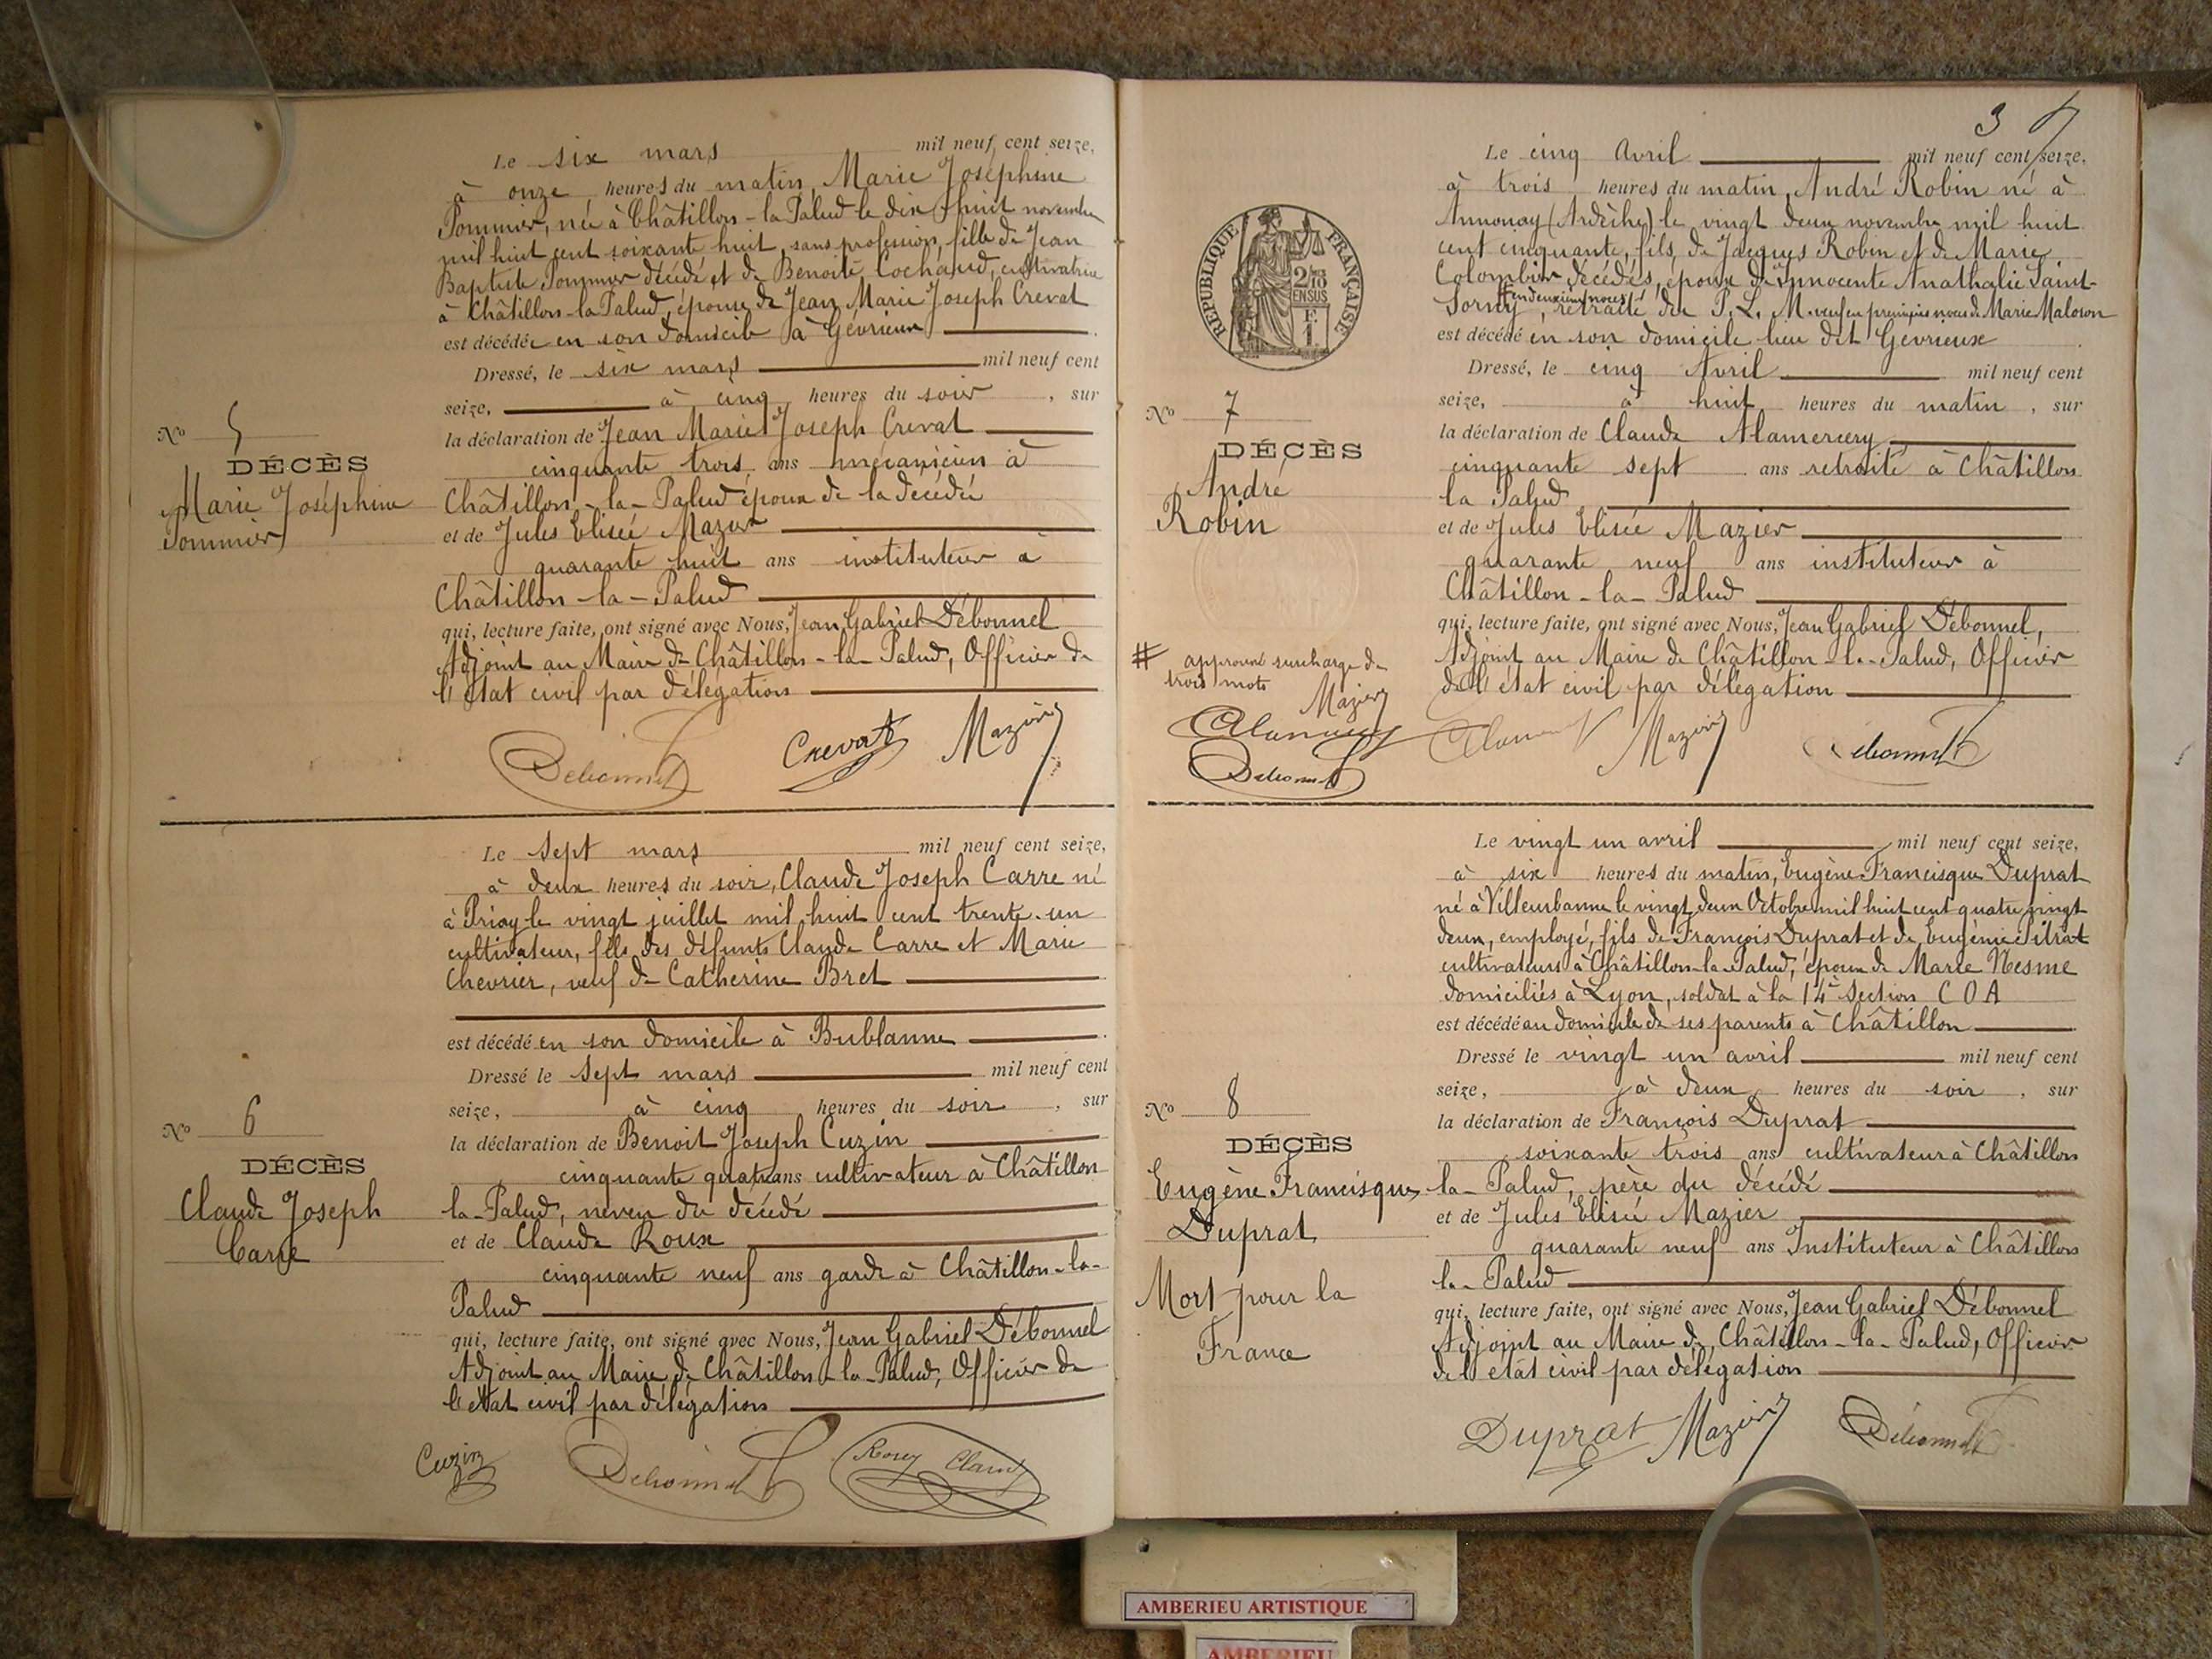 Le six mars mil neuf cent seize,
à onze heures du matin, Marie Joséphine
Pommier, née à Châtillon-la-Palud le dix huit novembre
mil huit cent soixante huit, sans profession, fille de Jean
Baptiste Pommier décédé et de Benoite Cochaud, cultivatrice
à Châtillon-la-Palud, épouse de Jean Marie Joseph Crevat
est décédée en son domicile à Gévrieux
Dressé, le six mars mil neuf cent
seize, à cinq heures du soir, sur
la déclaration de Jean Marie Joseph Crevat
cinquante trois ans mécanicien à
Châtillon-la-Palud époux de la décédée
et de Jules Elisée Mazier
quarante huit ans instituteur à
Châtillon-la-Palud
qui, lecture faite, ont signé avec Nous, Jean Gabriel Débonnel
Adjoint au Maire de Châtillon-la-Palud, Officier de
l'état civil par délégation
No 5
DÉCÈS
Marie Joséphine
Pommier
Debonnel Crevat Mazier
Le sept mars mil neuf cent seize,
à deux heures du soir, Claude Joseph Carre né
à Priay le vingt juillet mil huit cent trente-un
cultivateur, fils des défunts Claude Carre et Marie
Chevrier, veuf de Catherine Bret
est décédé en son domicile à Bublanne
Dressé le sept mars mil neuf cent
seize, à cinq heures du soir, sur
la déclaration de Benoit Joseph Cuzin
cinquante quatre ans cultivateur à Châtillon
la-Palud, neveu du décédé
et de Claude Roux
cinquante neuf ans garde à Châtillon-la-
Palud
qui, lecture faite, ont signé avec Nous, Jean Gabriel Débonnel
Adjoint au Maire de Châtillon-la-Palud, Officier de
l'état civil par délégation
No 6
DÉCÈS
Claude Joseph
Carre
Cuzin Debonnel Roux Claude
3
Le cinq Avril mil neuf cent seize,
à trois heures du matin, André Robin né à
Annonay (Ardèche) le vingt deux novembre mil huit
cent cinquante, fils de Jacques Robin et de Marie
Colombier décédés, époux de Innocente Anathalie Saint-
Sorny, # en deuxièmes noces, retraité du P. L. M. veuf en premières noces de Marie Maloson
est décédé en son domicile lieu dit Gevrieux
Dressé, le cinq Avril mil neuf cent
seize, à huit heures du matin, sur
la déclaration de Claude Alamercery
cinquante sept ans retraité à Châtillon
la Palud
et de Jules Elisée Mazier
quarante neuf ans instituteur à
Châtillon-la-Palud
qui, lecture faite, ont signé avec Nous, Jean Gabriel Débonnel,
Adjoint au Maire de Châtillon-la-Palud, Officier
de l'état civil par délégation
RÉPUBLIQUE FRANÇAISE
2/10
EN SUS
F
1
No 7
DÉCÈS
André
Robin
# approuvé surcharge de
trois mots
Mazier
Debonnel
Mazier Debonnel
Le vingt un avril mil neuf cent seize,
à six heures du matin, Eugène Francisque Duprat
né à Villeurbanne le vingt deux Octobre mil huit cent quatre vingt
deux, employé, fils de François Duprat et de Eugénie Pitrat
cultivateurs à Châtillon-la-Palud, époux de Marie Nesme
domiciliés à Lyon, soldat à la 14e Section C O A
est décédé au domicile de ses parents à Châtillon
Dressé le vingt un avril mil neuf cent
seize, à deux heures du soir, sur
la déclaration de François Duprat
soixante trois ans cultivateur à Châtillon
la-Palud, père du décédé
et de Jules Elisée Mazier
quarante neuf ans Instituteur à Châtillon
la-Palud
qui, lecture faite, ont signé avec Nous, Jean Gabriel Débonnel
Adjoint au Maire de Châtillon-la-Palud, Officier
de l'état civil par délégation
No 8
DÉCÈS
Eugène Francisque
Duprat
Mort pour la
France
Duprat Mazier Debonnel
AMBERIEU ARTISTIQUE
AMBERIEU